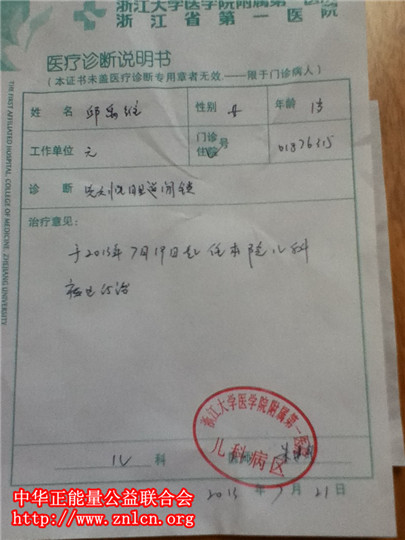 浙江大学医学院附属第一医院
浙江省第一医院
医疗诊断说明书
(本证书未盖医疗诊断专用章者无效.——限于门诊病人)
姓 名 邱 性别 年龄 1岁
工作单位 无 门诊 住院 号 01376315
诊 断 先天性胆道闭锁
治疗意见:
于2015年7月19日起 住本院儿科
病区诊治
儿 科
浙江大学医学院附属第一医院
儿科病区
2015 年 7 月 21 日
THE FIRST AFFILIATED HOSPITAL, COLLEGE OF MEDICINE, ZHEJIANG UNIVERSITY
中华正能量公益联合会
http://www.znlcn.org